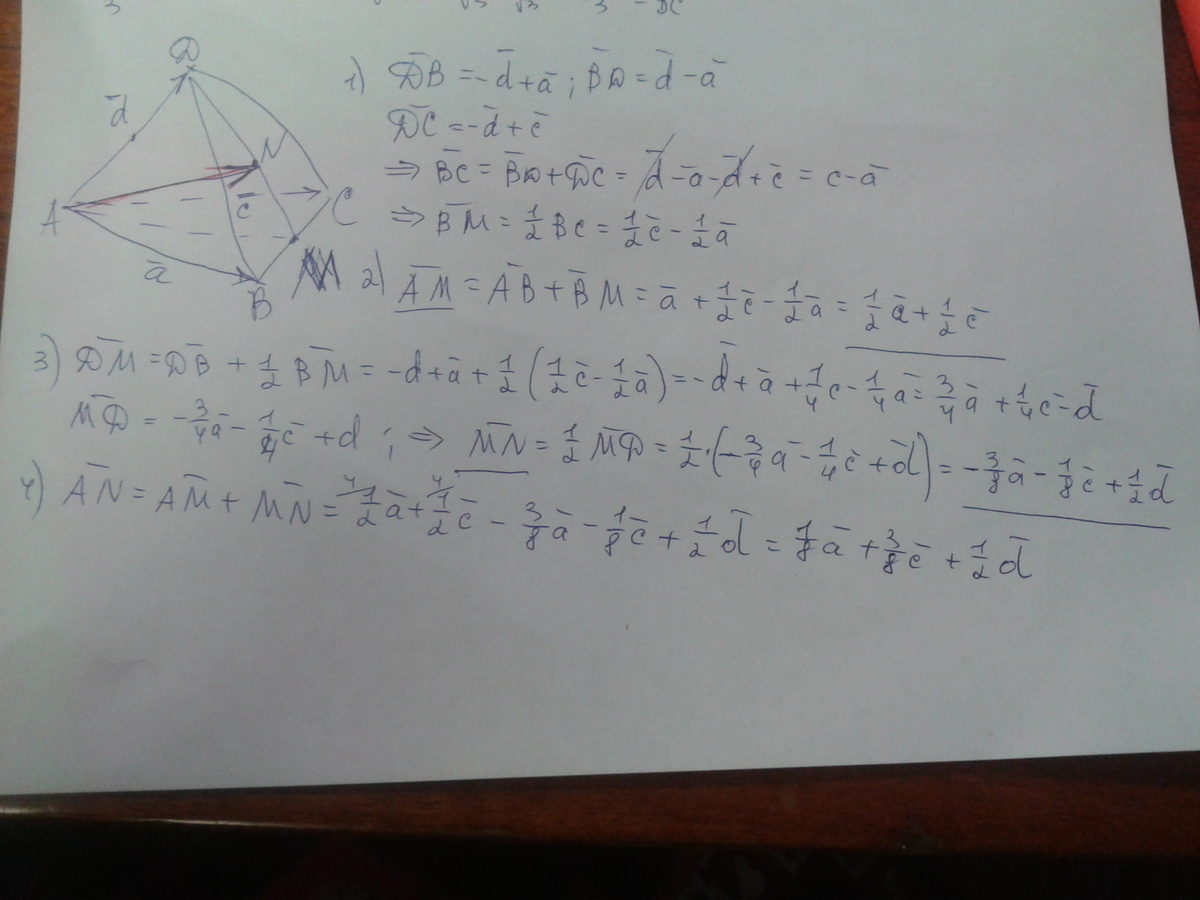 3 √3 √3 3 - DC
D
d̄
N
A
c̄
C
ā
B
M
1) D̄B = -d̄ + ā ; B̄D = d̄ - ā
D̄C = -d̄ + c̄
⇒ B̄C = B̄D + D̄C = d̄ - ā - d̄ + c̄ = c - ā
⇒ B̄M = 1/2 BC = 1/2 c̄ - 1/2 ā
2) ĀM = ĀB + B̄M = ā + 1/2 c̄ - 1/2 ā = 1/2 ā + 1/2 c̄
3) D̄M = D̄B + 1/2 B̄M = -d + ā + 1/2 (1/2 c̄ - 1/2 ā) = -d̄ + ā + 1/4 c - 1/4 ā = 3/4 ā + 1/4 c̄ - d̄
M̄D = -3/4 ā - 1/4 c̄ + d ; ⇒ M̄N = 1/2 M̄D = 1/2 · (-3/4 ā - 1/4 c̄ + d̄) = -3/8 ā - 1/8 c̄ + 1/2 d̄
4) ĀN = ĀM + M̄N = 4/ 1/2 ā + 4/ 1/2 c̄ - 3/8 ā - 1/8 c̄ + 1/2 d̄ = 1/8 ā + 3/8 c̄ + 1/2 d̄